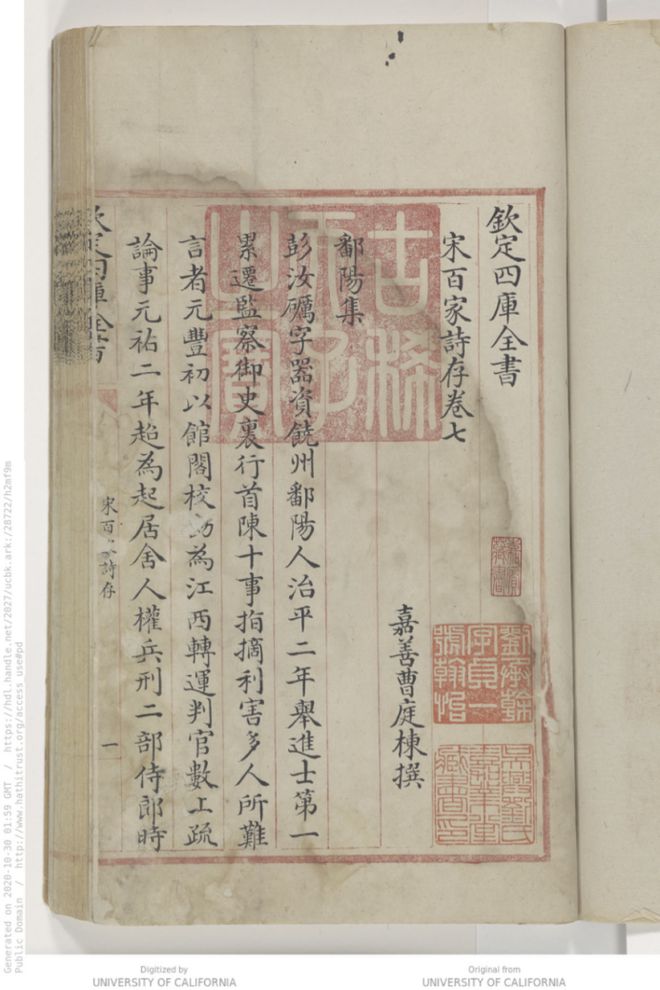 欽定四庫全書
宋百家詩存卷七
嘉善曹庭棟撰
鄱陽集
彭汝礪字器資饒州鄱陽人治平二年舉進士第一
累遷監察御史裏行首陳十事指摘利害多人所難
言者元豐初以館閣校 為江西轉運判官數上疏
論事元祐二年起為起居舍人權兵刑二部侍郎時
欽定四庫全書
宋百 詩存
一
古稀天子之寶
劉承幹字貞一號翰怡
吳興劉氏嘉業堂藏書印
Generated on 2020-10-30 01:59 GMT / https://hdl.handle.net/2027/ucbk.ark:/28722/h2mf9m
Public Domain / http://www.hathitrust.org/access_use#pd
Digitized by
UNIVERSITY OF CALIFORNIA
Original from
UNIVERSITY OF CALIFORNIA